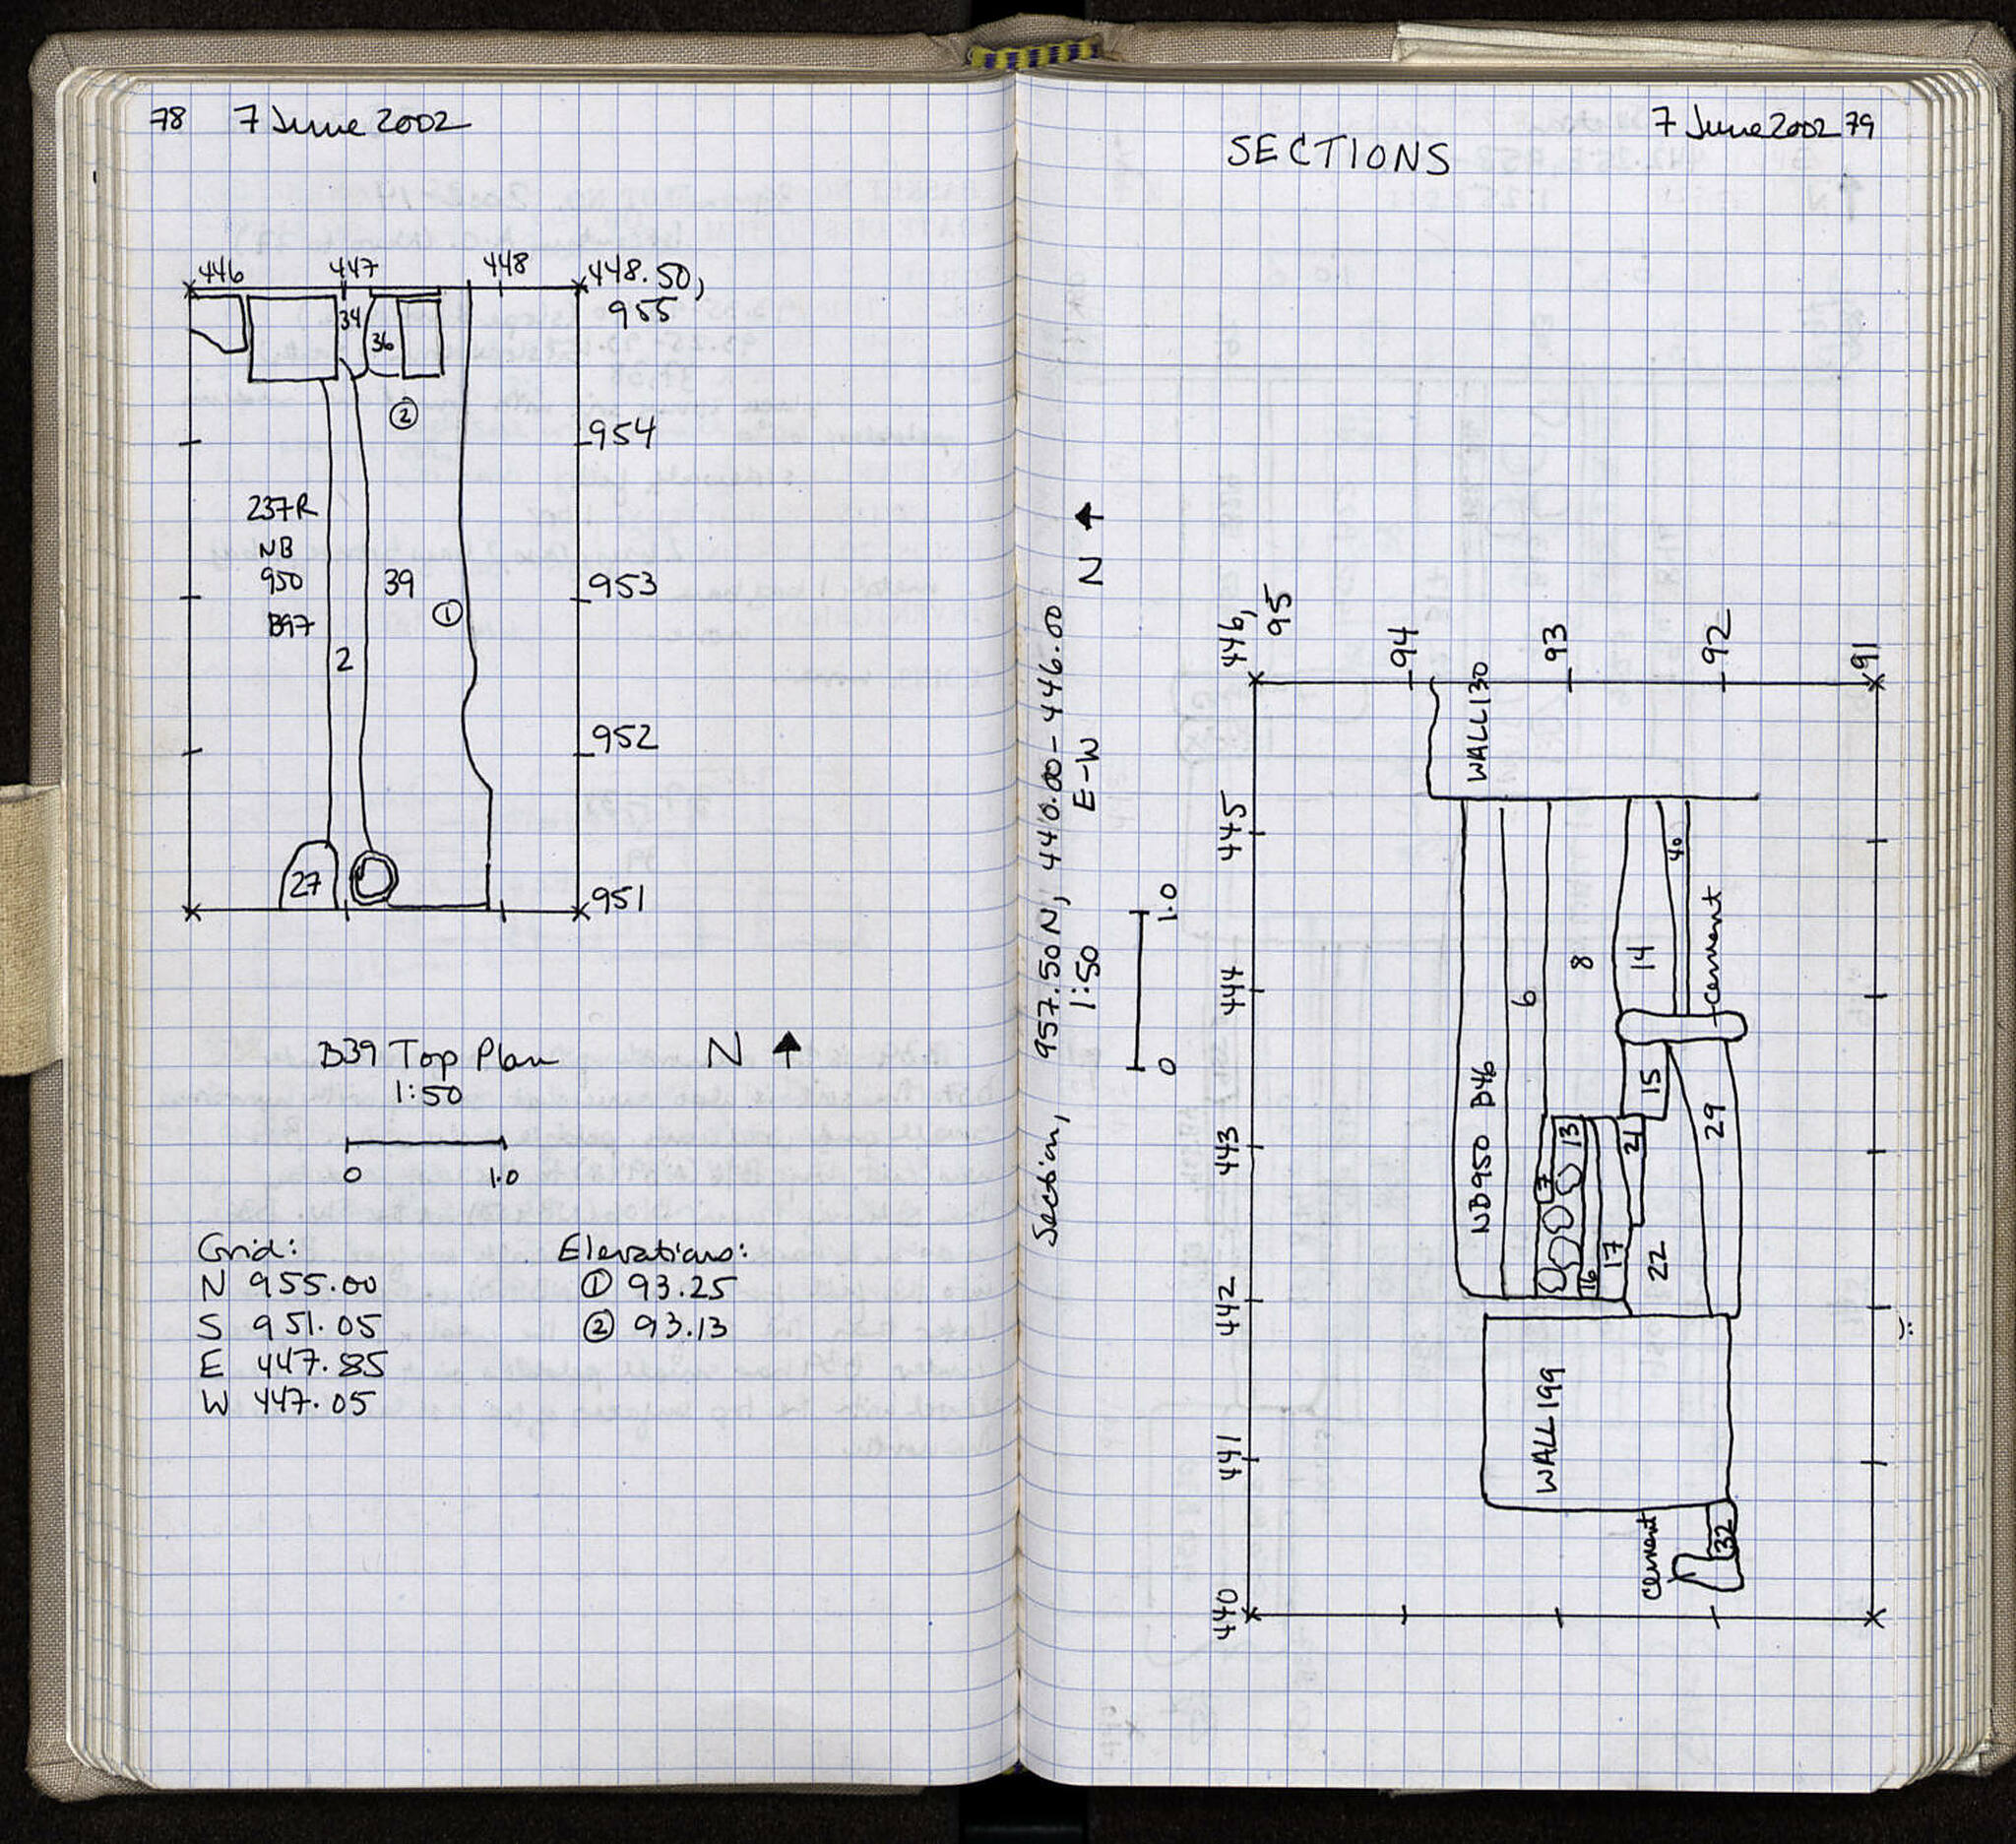 78 7 June 2002
446 447 448 448.50,
955
34
36
②
954
237R
NB
950
B97
39
953
①
2
952
27
951
B39 Top Plan N
1:50
0 1.0
Grid:
N 955.00
S 951.05
E 447.85
W 447.05
Elevations:
① 93.25
② 93.13
7 June 2002 79
SECTIONS
Section, 957.50 N, 440.00-446.00
1:50 E-W N
0 1.0
446,
95
94
93
92
91
445
444
443
442
441
440
WALL 130
NB950 B46
6
8
14
40
cement
15
29
13
7
21
16
17
22
WALL 199
cement
32